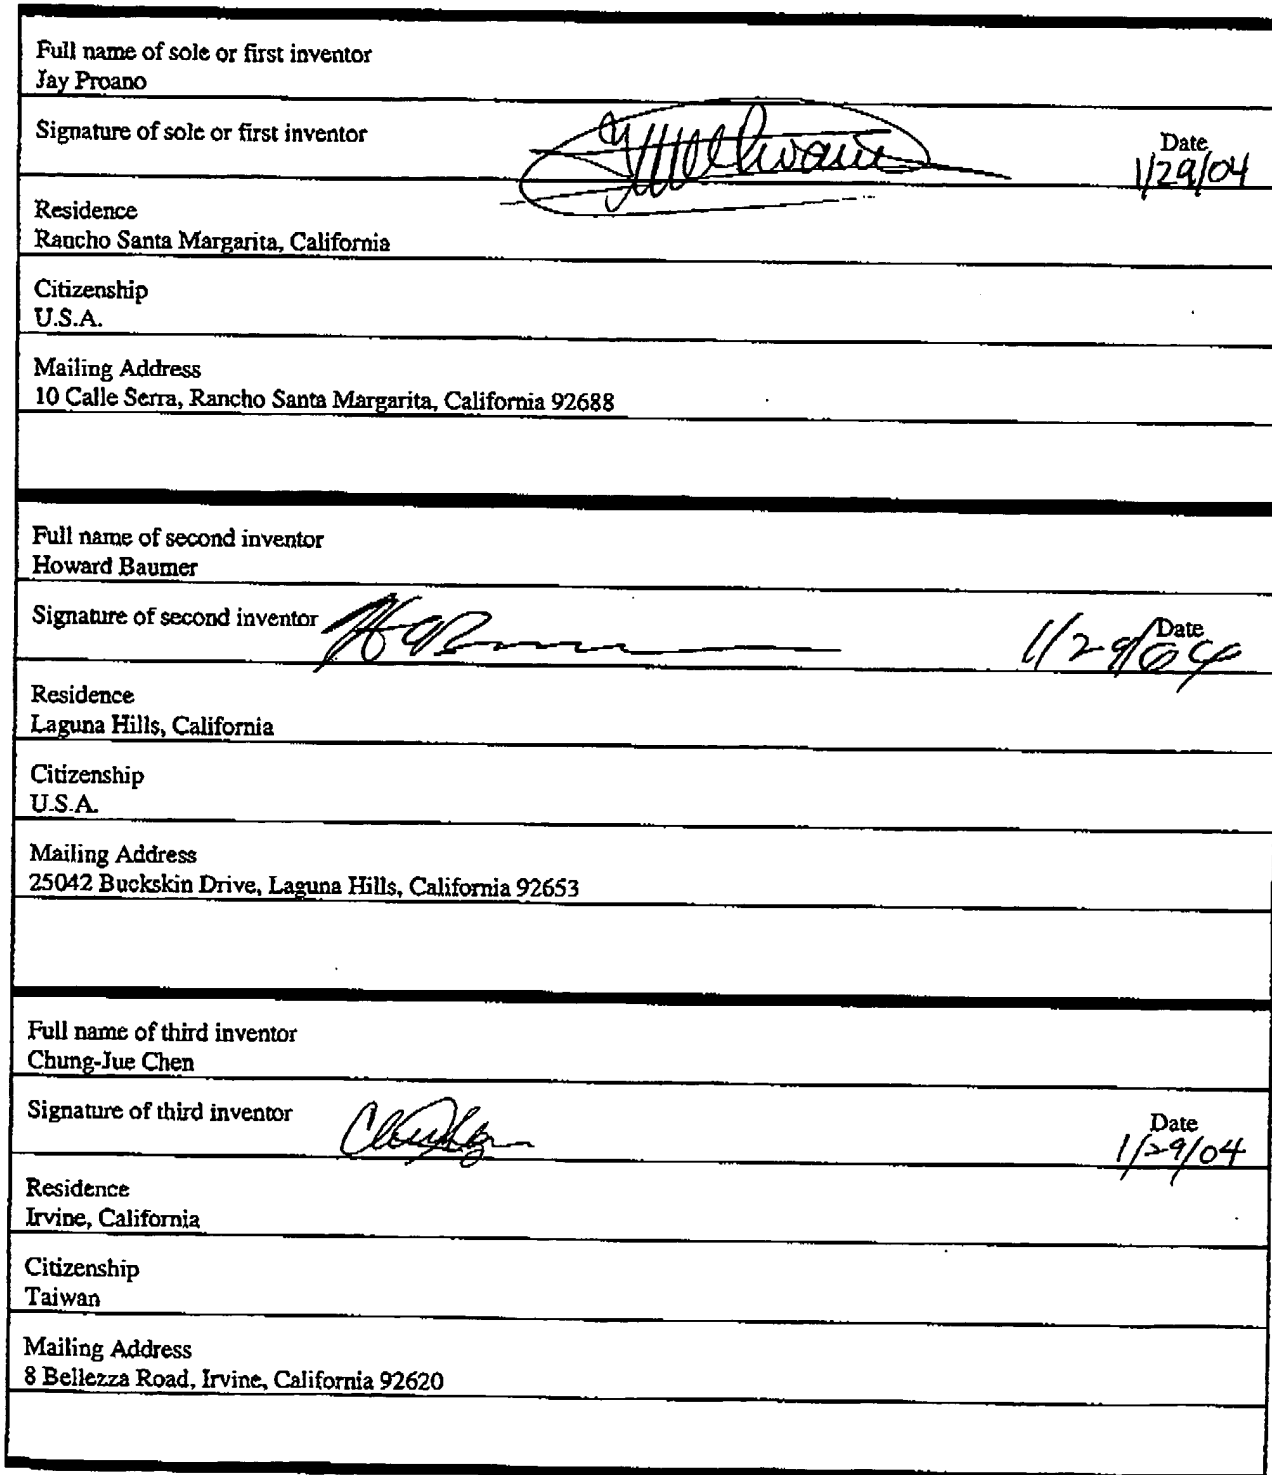 Full name of sole or first inventor
Jay Proano
Signature of sole or first inventor
Date
1/29/04
Residence
Rancho Santa Margarita, California
Citizenship
U.S.A.
Mailing Address
10 Calle Serra, Rancho Santa Margarita, California 92688
Full name of second inventor
Howard Baumer
Signature of second inventor
Date
1/29/04
Residence
Laguna Hills, California
Citizenship
U.S.A.
Mailing Address
25042 Buckskin Drive, Laguna Hills, California 92653
Full name of third inventor
Chung-Jue Chen
Signature of third inventor
Date
1/29/04
Residence
Irvine, California
Citizenship
Taiwan
Mailing Address
8 Bellezza Road, Irvine, California 92620